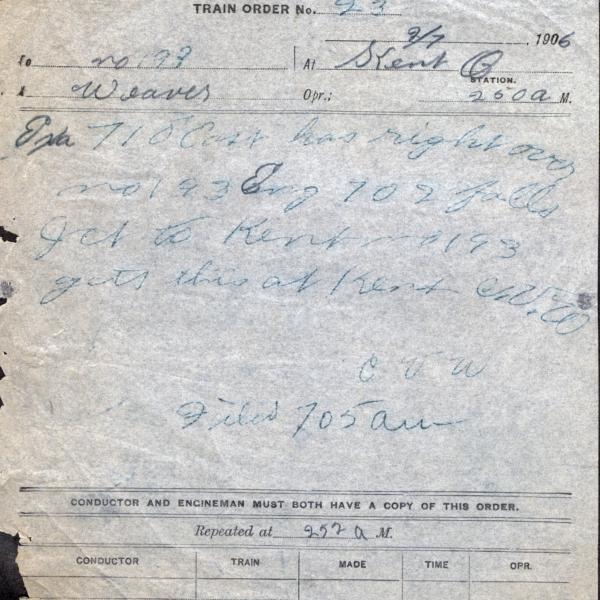 TRAIN ORDER No. 23
3/7, 1906
To no 193 At Kent O
STATION.
X Weaver Opr.; 250a M.
Exa 710 East has right over
no 193 Eng 702 falls
Jct to Kent no 193
gets this at Kent CVW
C V W
Filed 705am
CONDUCTOR AND ENGINEMAN MUST BOTH HAVE A COPY OF THIS ORDER.
Repeated at 252 a M.
CONDUCTOR TRAIN MADE TIME OPR.